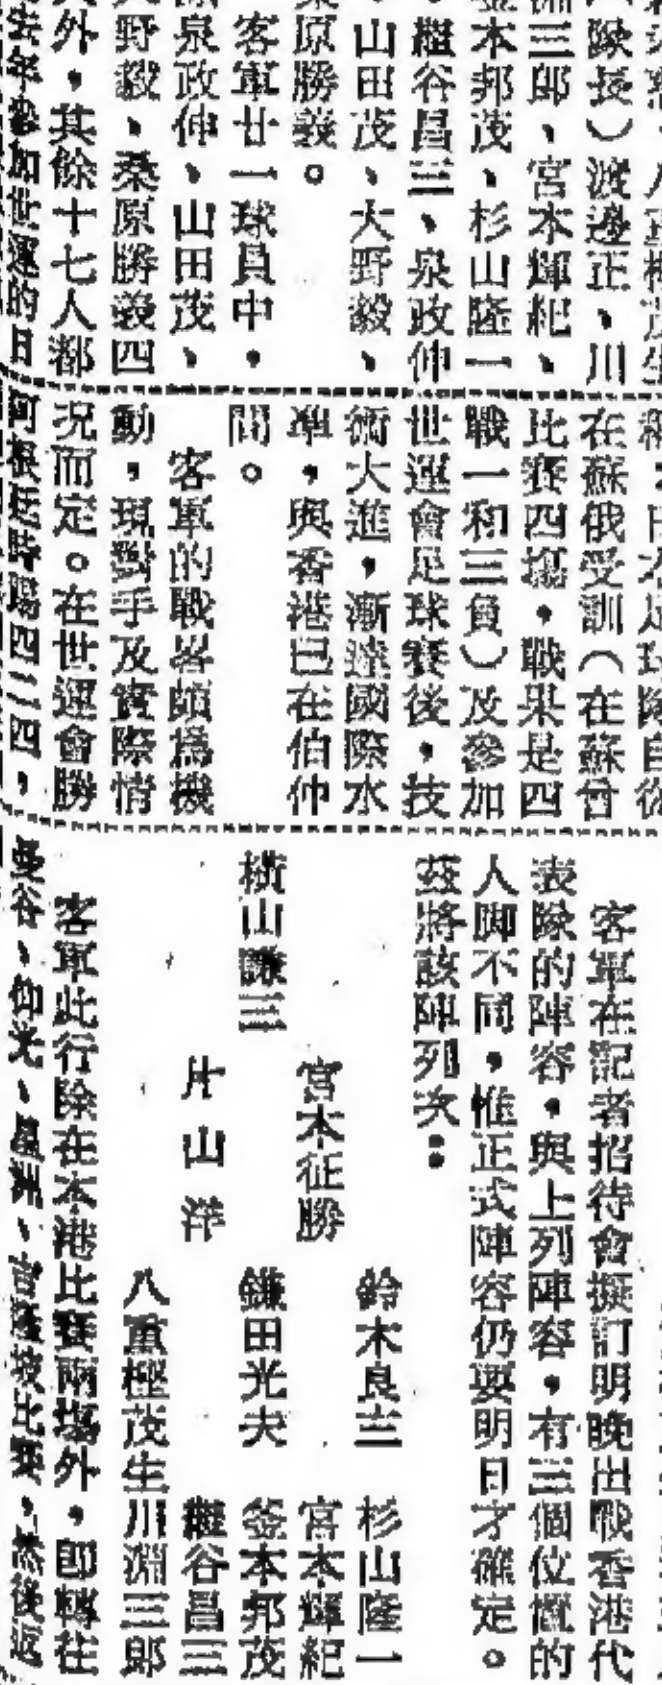 隊長）渡邊正、川
淵三郎、宮本輝紀、
釜本邦茂、杉山隆一
、繼谷昌三、泉政伸
、山田茂、大野毅、
桑原勝義。
客軍廿一球員中，
泉政伸、山田茂、
大野毅、桑原勝義四
人外，其餘十七人都
去年參加世運的日
在蘇俄受訓（在蘇曾
比賽四場，戰果是四
戰一和三負）及參加
世運會足球賽後，技
術大進，漸達國際水
準，與香港已在伯仲
間。
客軍的戰畧頗爲機
動，現對手及實際情
况而定。在世運會勝
阿根廷時踢四二四，
客軍在記者招待會擬訂明晚出戰香港代
表隊的陣容，與上列陣容，有三個位置的
人脚不同，惟正式陣容仍要明日才確定。
茲將該陣列次：
鈴木良三　杉山隆一
宮本征勝　宮本輝紀
橫山謙三　鎌田光夫　釜本邦茂
片山洋　繼谷昌三
八重樫茂生　川淵三郎
客軍此行除在本港比賽兩場外，即轉往
曼谷、仰光、星洲、吉隆坡比賽，然後返